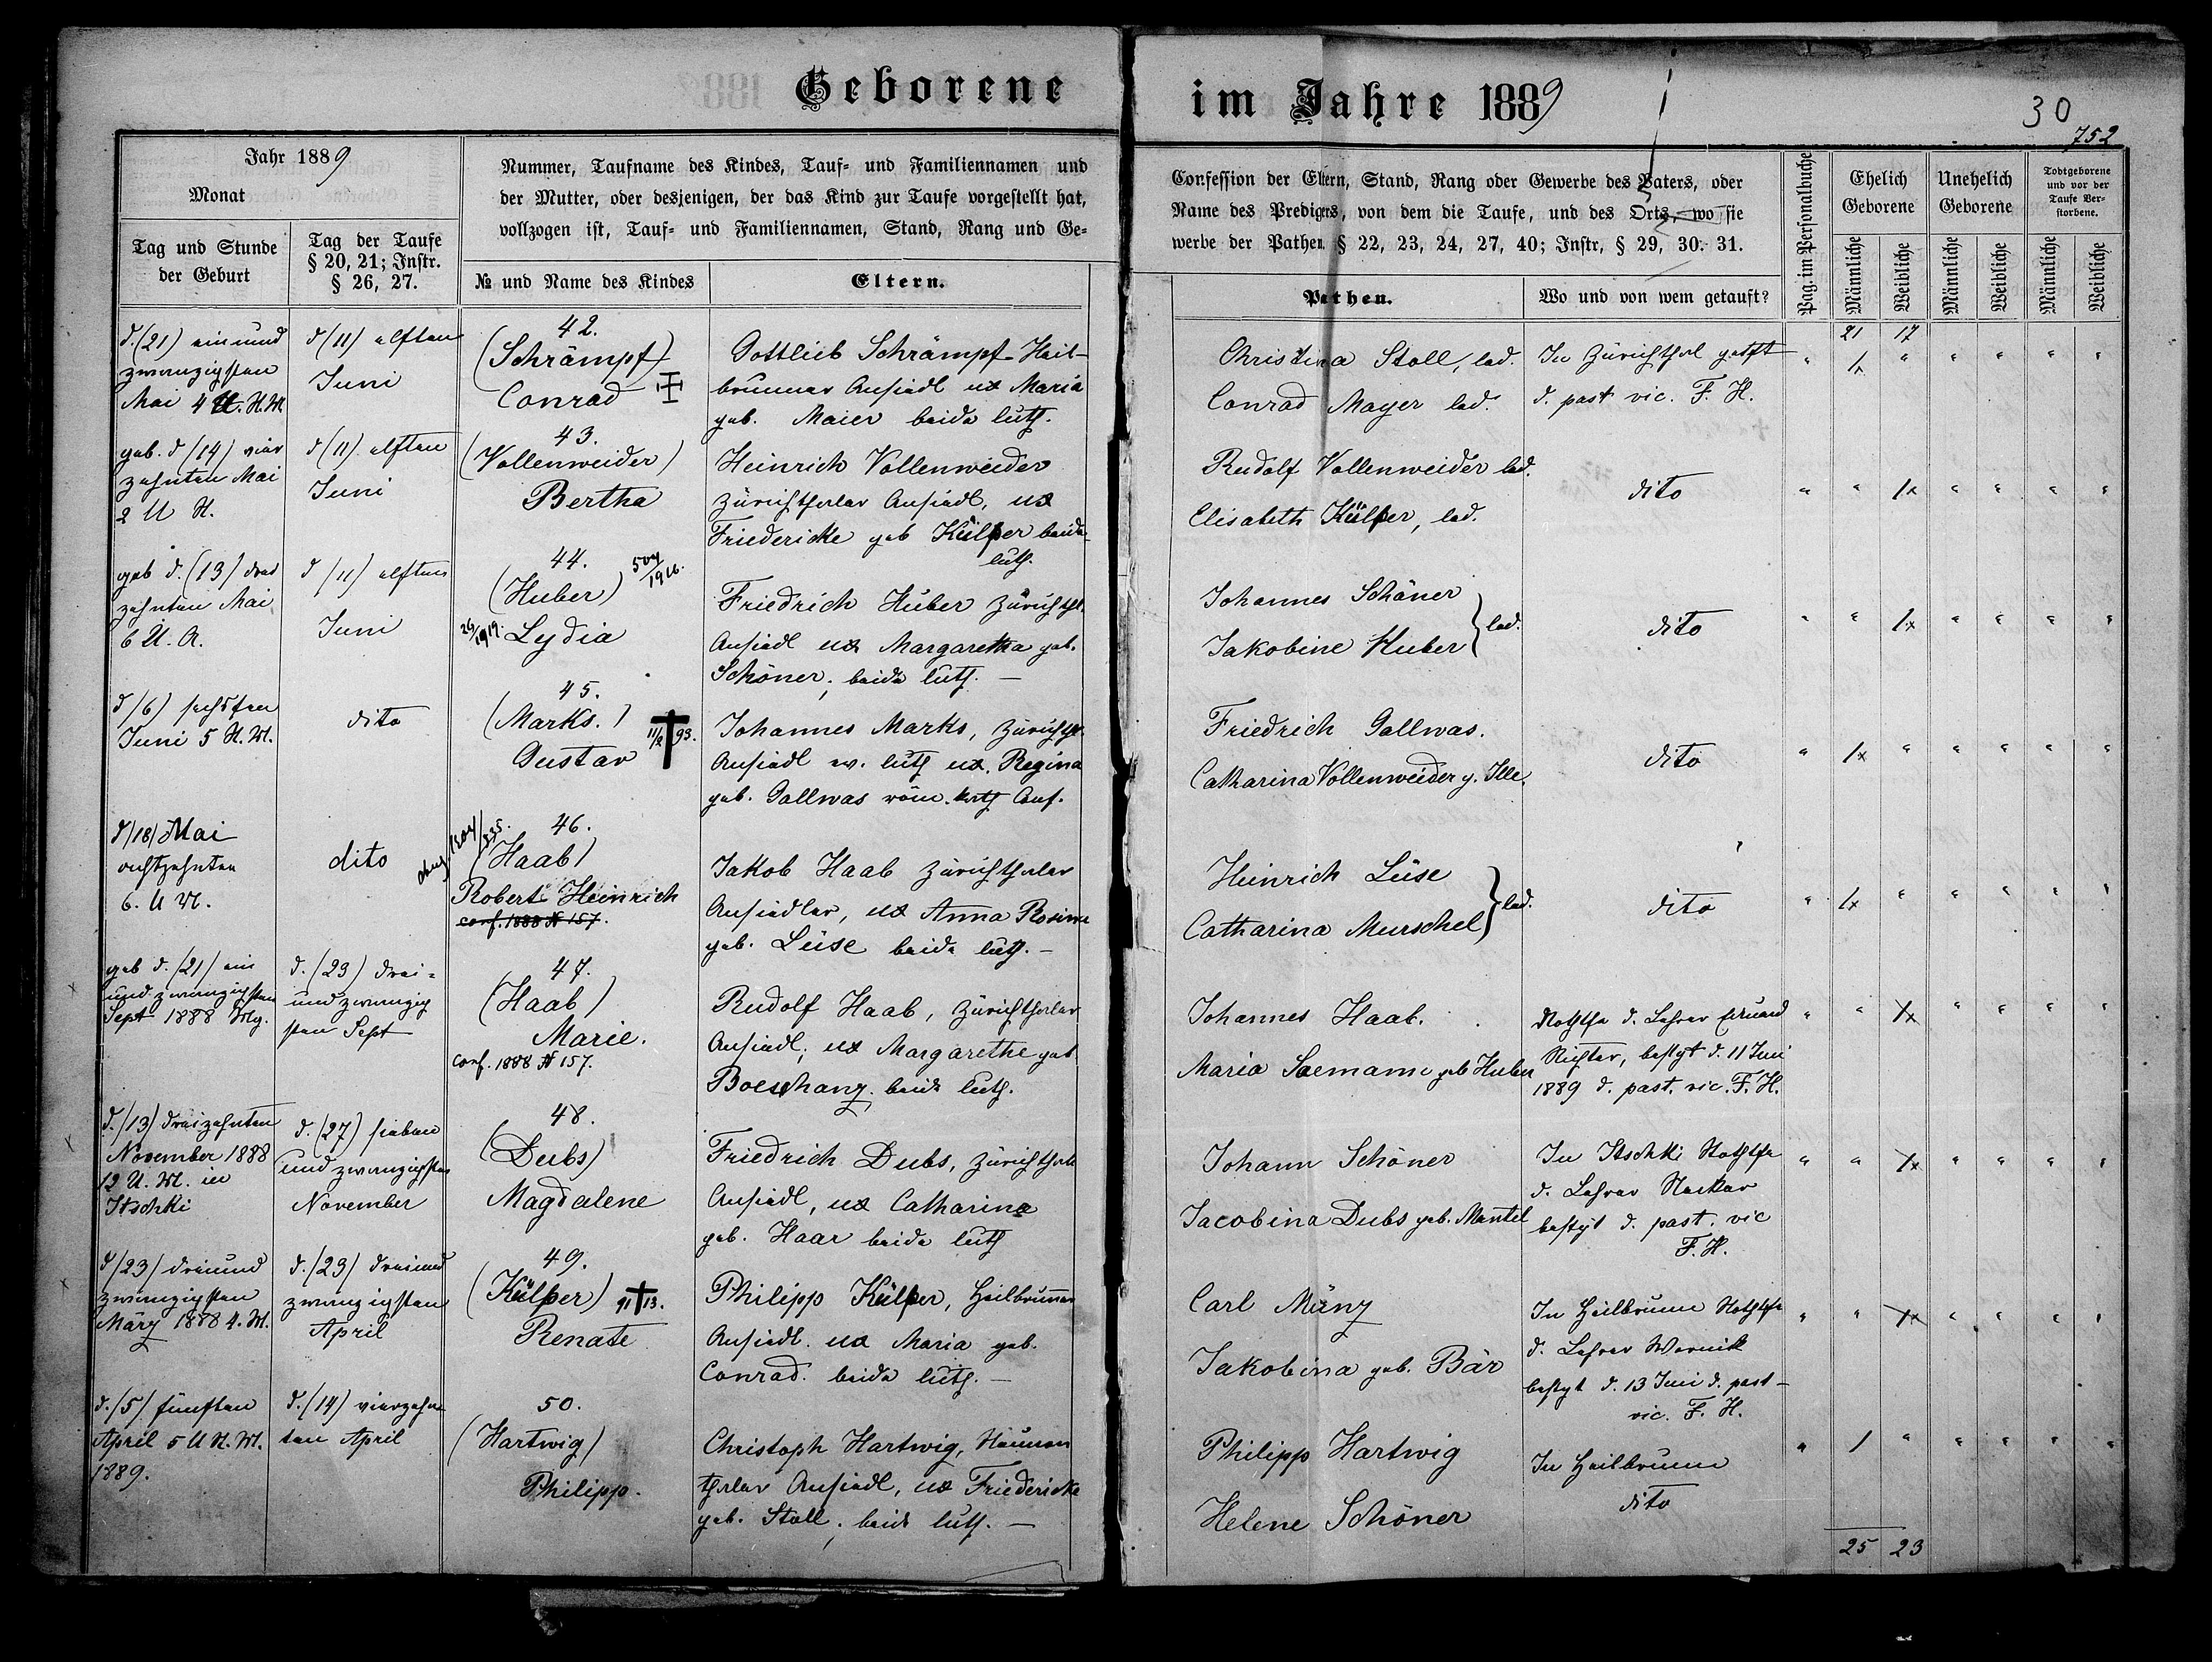 Geborene
im Jahre 1889
30
752
Jahr 1889
Monat
Tag und Stunde
der Geburt
Tag der Taufe
§ 20, 21; Instr.
§ 26, 27.
Nummer, Taufname des Kindes, Tauf- und Familiennamen und
der Mutter, oder desjenigen, der das Kind zur Taufe vorgestellt hat,
vollzogen ist, Tauf- und Familiennamen, Stand, Rang und Ge-
№ und Name des Kindes
Eltern.
Confession der Eltern, Stand, Rang oder Gewerbe des Vaters, oder
Name des Predigers, von dem die Taufe, und des Orts, wo sie
werbe der Pathen § 22, 23, 24, 27, 40; Instr, § 29, 30. 31.
Pathen.
Wo und von wem getauft?
Pag. im Personalbuche
Ehelich
Geborene
Unehelich
Geborene
Todtgeborene
und vor der
Taufe Ver-
storbene.
Männliche
Weibliche
Männliche
Weibliche
Männliche
Weibliche
21 17
d. (21) einund
zwanzigsten
Mai 4 U. N. M.
d (11) elften
Juni
42.
(Schrämpf)
Conrad
Gottlieb Schrämpf Heil-
brunner Ansiedl ux Maria
geb. Maier beide luth.
Christina Stoll, led.
Conrad Mayer led.
In Zürichthal getft
d. past vic. F. H.
geb. d (14) vier
zehnten Mai
2 U N.
d (11) elften
Juni
43.
(Vollenweider)
Bertha
Heinrich Vollenweider
Zürichthaler Ansiedl, ux
Friedericke geb Külper beide
luth.
Rudolf Vollenweider led.
Elisabeth Külper, led.
dito
geb d. (13) drei
zehnten Mai
6 U. A.
d (11) elften
Juni
44.
(Huber)
Lydia
Friedrich Huber Zürichthl.
Ansiedl ux Margaretha geb.
Schöner, beide luth. —
Johannes Schöner
Jakobine Huber } led.
dito
d (6) sechsten
Juni 5 N. M.
dito
45.
(Marks.)
Gustav
11/2 93.
Johannes Marks, Zürichth
Ansiedl ev. luth ux. Regina
geb. Gallwas röm. kath Conf.
Friedrich Gallwas.
Catharina Vollenweider g. Ille.
dito
d (18) Mai
achtzehnten
6. U M.
dito
46.
(Haab)
Robert Heinrich
conf. 1888 N 157.
Jakob Haab Zürichthaler
Ansiedler, ux Anna Rosine
geb. Lüse beide luth. —
Heinrich Lüse
Catharina Murschel } led.
dito
geb d. (21) ein
und zwanzigsten
Sept 1888 Mg.
d. (23) drei-
und zwanzig
sten Sept
47.
(Haab)
Marie.
conf. 1888 N 157.
Rudolf Haab, Zürichthaler
Ansiedl, ux Margarethe geb
Boeshanz, beide luth.
Johannes Haab.
Maria Saemann geb Huber
Nothtfe d. Lehrer Eduard
Richter, bestgt d. 11 Juni
1889 d. past. vic. F. H.
d. (13) dreizehnten
November 1888
12 U. M. in
Itschki
d. (27) sieben
und zwanzigsten
November
48.
(Dubs)
Magdalene
Friedrich Dubs, Zürichthale
Ansiedl, ux Catharina
geb. Haar beide luth
Johann Schöner
Jacobina Dubs geb. Mantel
In Itschki Nothtfe
d. Lehrer
bestgt d. past. vic
F. H.
d (23) dreiund
zwanzigsten
März 1888 4. M.
d. (23) dreiund
zwanzigsten
April
49.
(Külper)
Renate
Philipp Külper, Heilbrunner
Ansiedl. ux Maria geb.
Conrad. beide luth. —
Carl Münz
Jakobina geb. Bär
In Heilbrunn Nothtfe
d. Lehrer Wernik
bestgt d. 13 Juni d. past-
vic. F. H.
d. (5) fünften
April 5 U N. M.
1889.
d. (14) vierzehn
ten April
50.
(Hartwig)
Philipp.
Christoph Hartwig, Neumon
thaler Ansiedl, ux Friedericke
geb. Stoll, beide luth. —
Philipp Hartwig
Helene Schöner
In Heilbrunn
dito
25 23